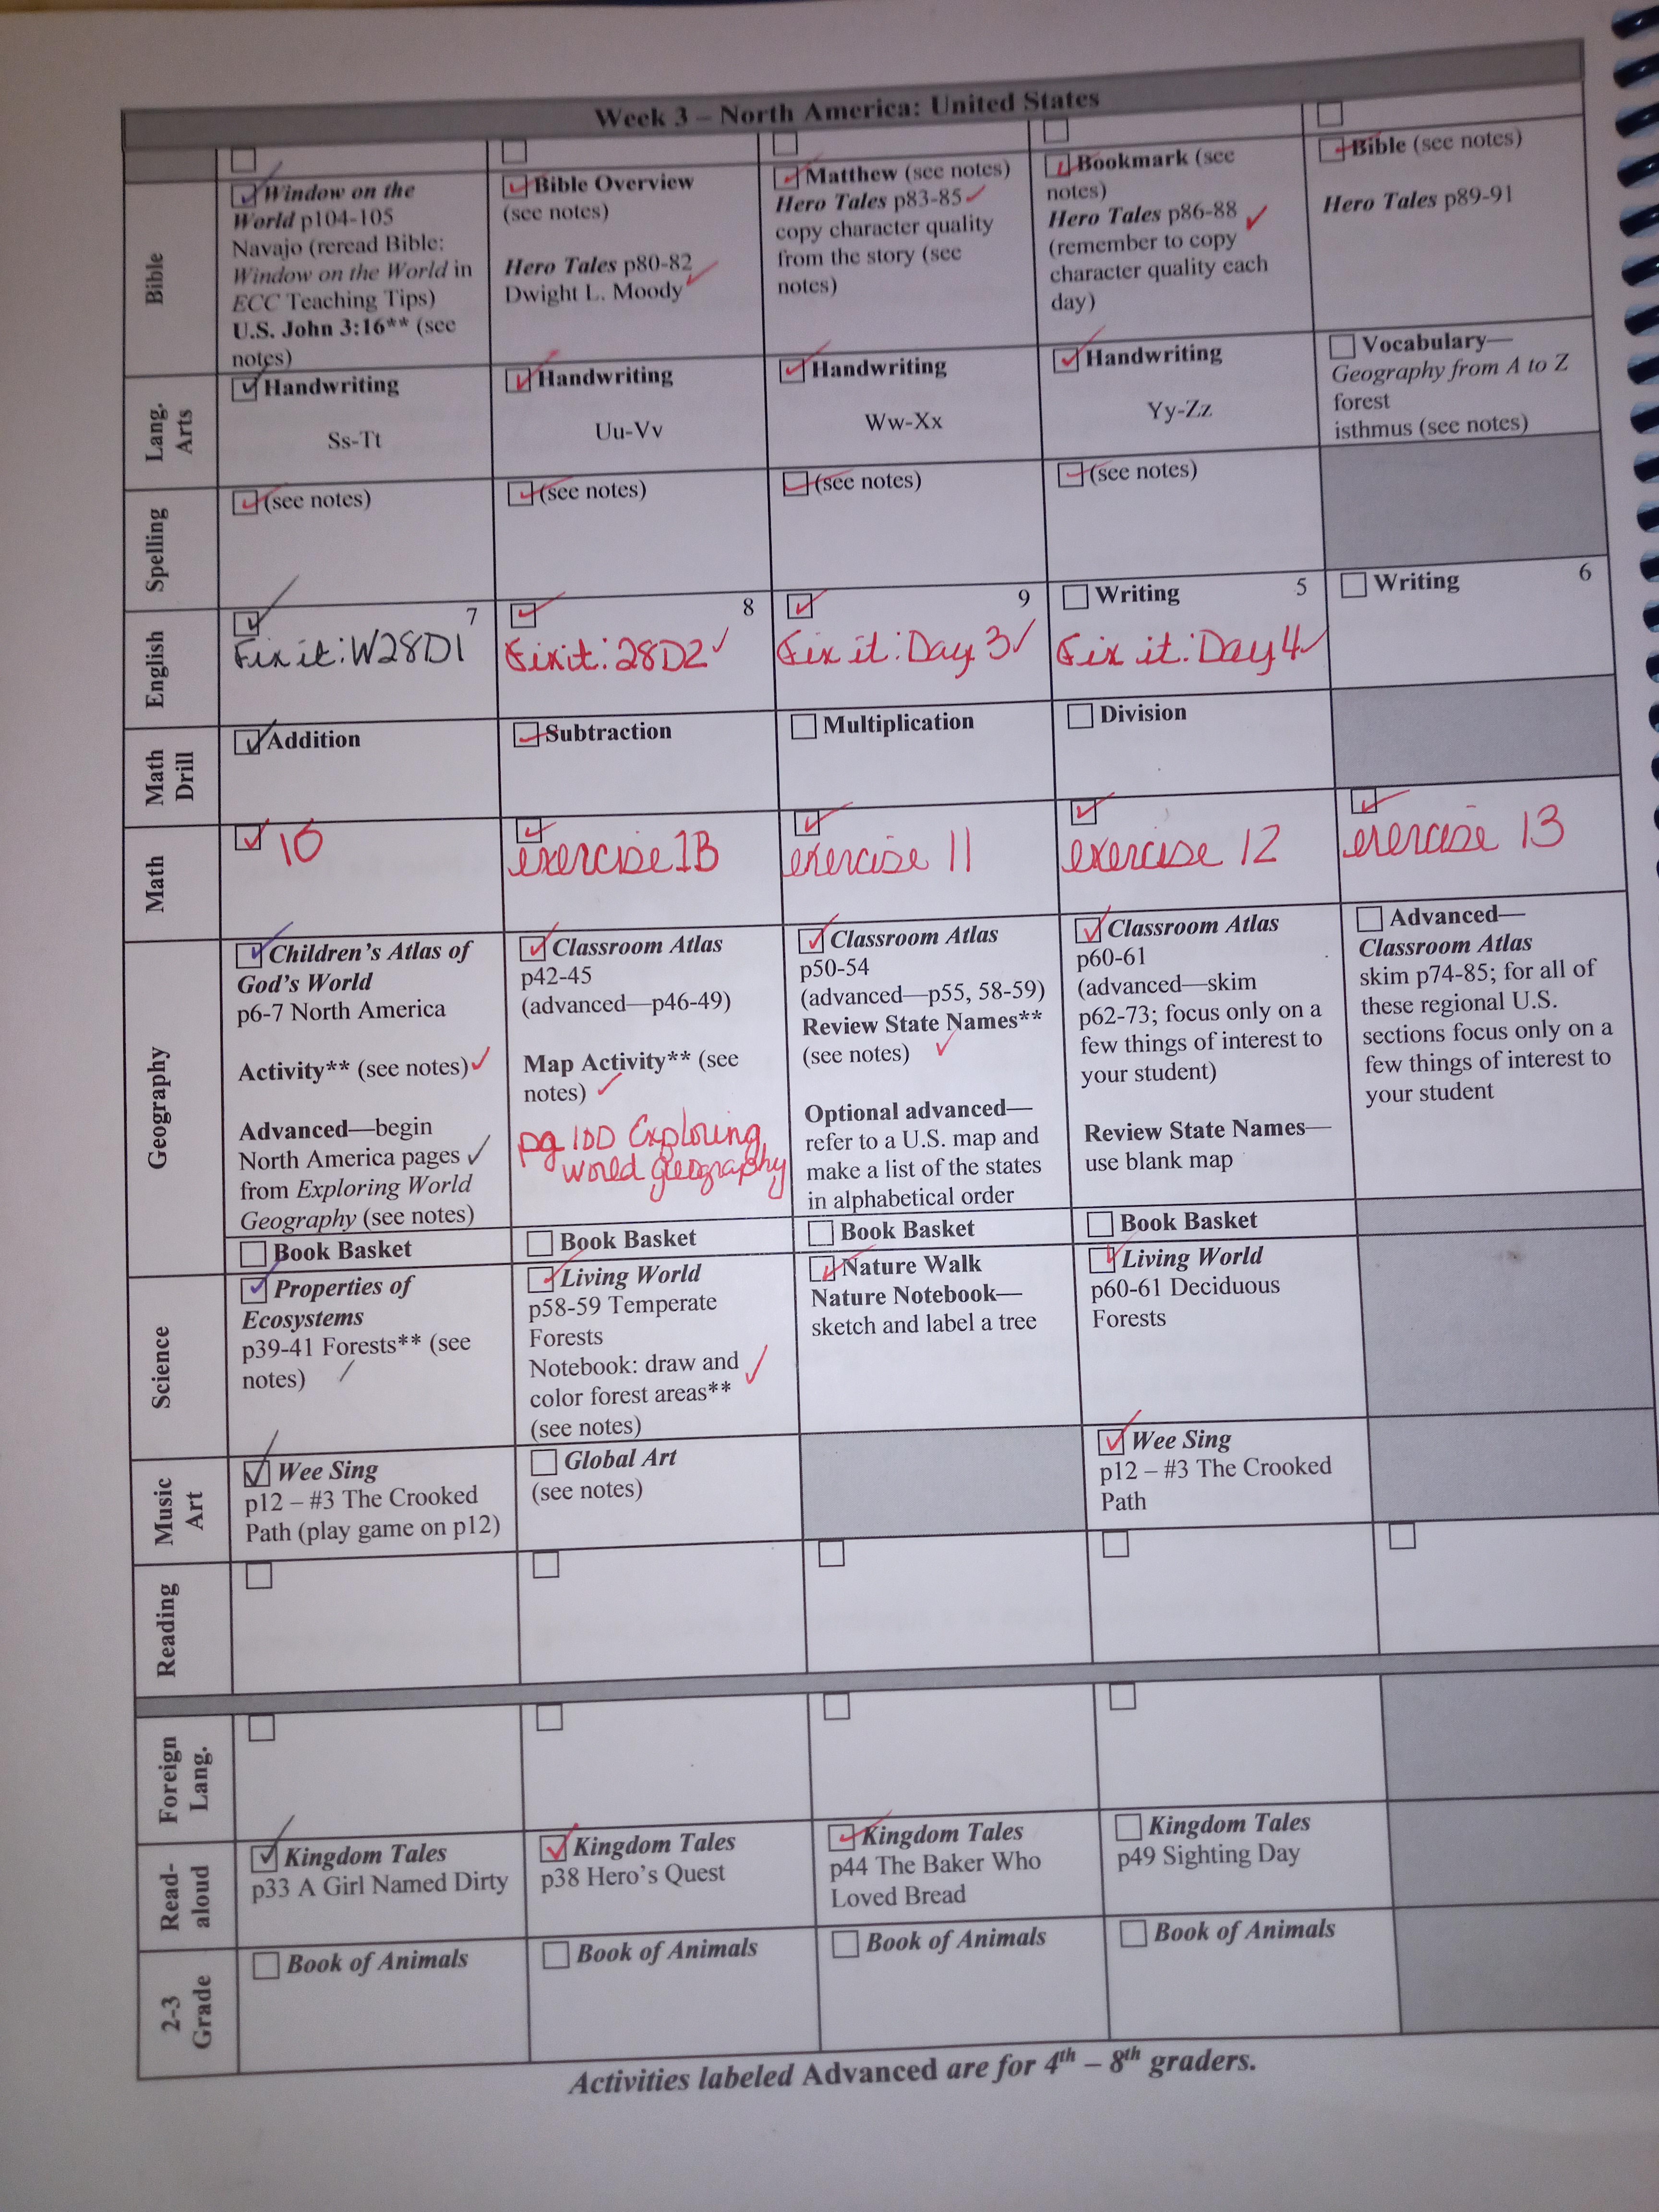 Week 3 – North America: United States
Bible
Window on the
World p104-105
Navajo (reread Bible:
Window on the World in
ECC Teaching Tips)
U.S. John 3:16** (see
notes)
Bible Overview
(see notes)
Hero Tales p80-82
Dwight L. Moody
Matthew (see notes)
Hero Tales p83-85
copy character quality
from the story (see
notes)
Bookmark (see
notes)
Hero Tales p86-88
(remember to copy
character quality each
day)
Bible (see notes)
Hero Tales p89-91
Lang.
Arts
Handwriting
Ss-Tt
Handwriting
Uu-Vv
Handwriting
Ww-Xx
Handwriting
Yy-Zz
Vocabulary—
Geography from A to Z
forest
isthmus (see notes)
Spelling
(see notes)
(see notes)
(see notes)
(see notes)
English
7
Fix it: W28D1
8
Fix it: 28D2
9
Fix it: Day 3
Writing 5
Fix it: Day 4
Writing 6
Math
Drill
Addition
Subtraction
Multiplication
Division
Math
10
exercise 1B
exercise 11
exercise 12
exercise 13
Geography
Children's Atlas of
God's World
p6-7 North America
Activity** (see notes)
Advanced—begin
North America pages
from Exploring World
Geography (see notes)
Classroom Atlas
p42-45
(advanced—p46-49)
Map Activity** (see
notes)
pg 100 Exploring
world geography
Classroom Atlas
p50-54
(advanced—p55, 58-59)
Review State Names**
(see notes)
Optional advanced—
refer to a U.S. map and
make a list of the states
in alphabetical order
Classroom Atlas
p60-61
(advanced—skim
p62-73; focus only on a
few things of interest to
your student)
Review State Names—
use blank map
Advanced—
Classroom Atlas
skim p74-85; for all of
these regional U.S.
sections focus only on a
few things of interest to
your student
Book Basket
Book Basket
Book Basket
Book Basket
Science
Properties of
Ecosystems
p39-41 Forests** (see
notes)
Living World
p58-59 Temperate
Forests
Notebook: draw and
color forest areas**
(see notes)
Nature Walk
Nature Notebook—
sketch and label a tree
Living World
p60-61 Deciduous
Forests
Music
Art
Wee Sing
p12 – #3 The Crooked
Path (play game on p12)
Global Art
(see notes)
Wee Sing
p12 – #3 The Crooked
Path
Reading
Foreign
Lang.
Read-
aloud
Kingdom Tales
p33 A Girl Named Dirty
Kingdom Tales
p38 Hero's Quest
Kingdom Tales
p44 The Baker Who
Loved Bread
Kingdom Tales
p49 Sighting Day
2-3
Grade
Book of Animals
Book of Animals
Book of Animals
Book of Animals
Activities labeled Advanced are for 4th – 8th graders.